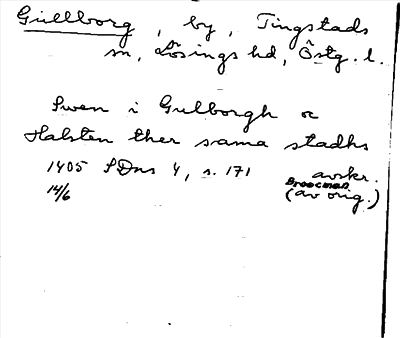 Gullborg, by, Tingstads
sn, Lösings hd, Östg. l.
Swen i Gulborgh oc
Halsten ther sama stadhs
1405 SDns 4, s. 171 avskr.
14/6 Broocman (av orig.)